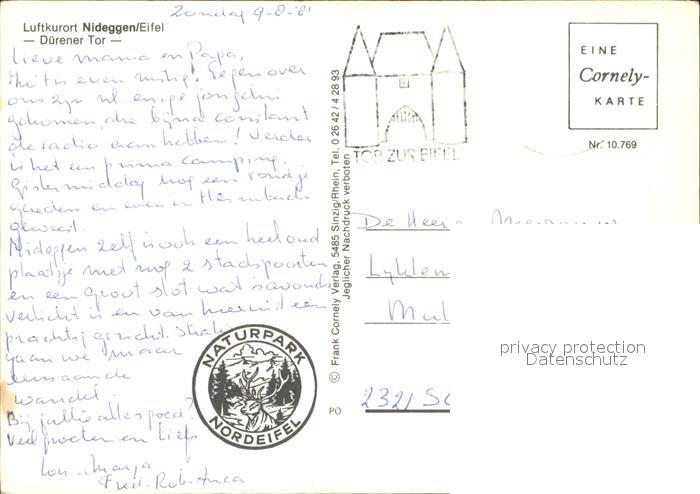 Zondag 9-8-'81
Luftkurort Nideggen/Eifel
— Dürener Tor —
Lieve mama en Papa,
Het is even rustig! Tegenover
ons zijn nl. enige jongelui
gekomen, die bijna constant
de radio aan hebben! Verder
is het een prima camping.
Gistermiddag nog een rondje
gereden en even in Heimbach
geweest.
Nideggen zelf is ook een heel oud
plaatsje met nog 2 stadspoorten
en een groot slot wat 's avonds
verlicht is en van hieruit een
prachtig gezicht. Straks
gaan we maar
eens aan de
wandel.
Bij jullie alles goed?
Veel groeten en liefs
Marja
Rob
NATURPARK
NORDEIFEL
© Frank Cornely Verlag, 5485 Sinzig/Rhein, Tel. 0 26 42 / 4 28 93
Jeglicher Nachdruck verboten
TOR ZUR EIFEL
EINE
Cornely-
KARTE
Nr. 10.769
De Heer
Lyklem
2321
PO
privacy protection
Datenschutz